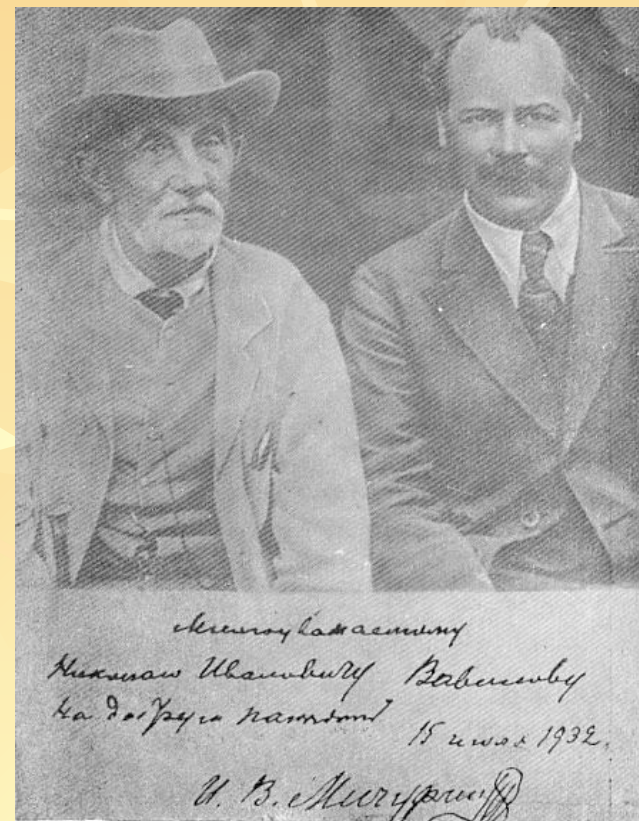 Многоуважаемому
Николаю Ивановичу Вавилову
на добрую память
15 июля 1932.
И. В. Мичурин